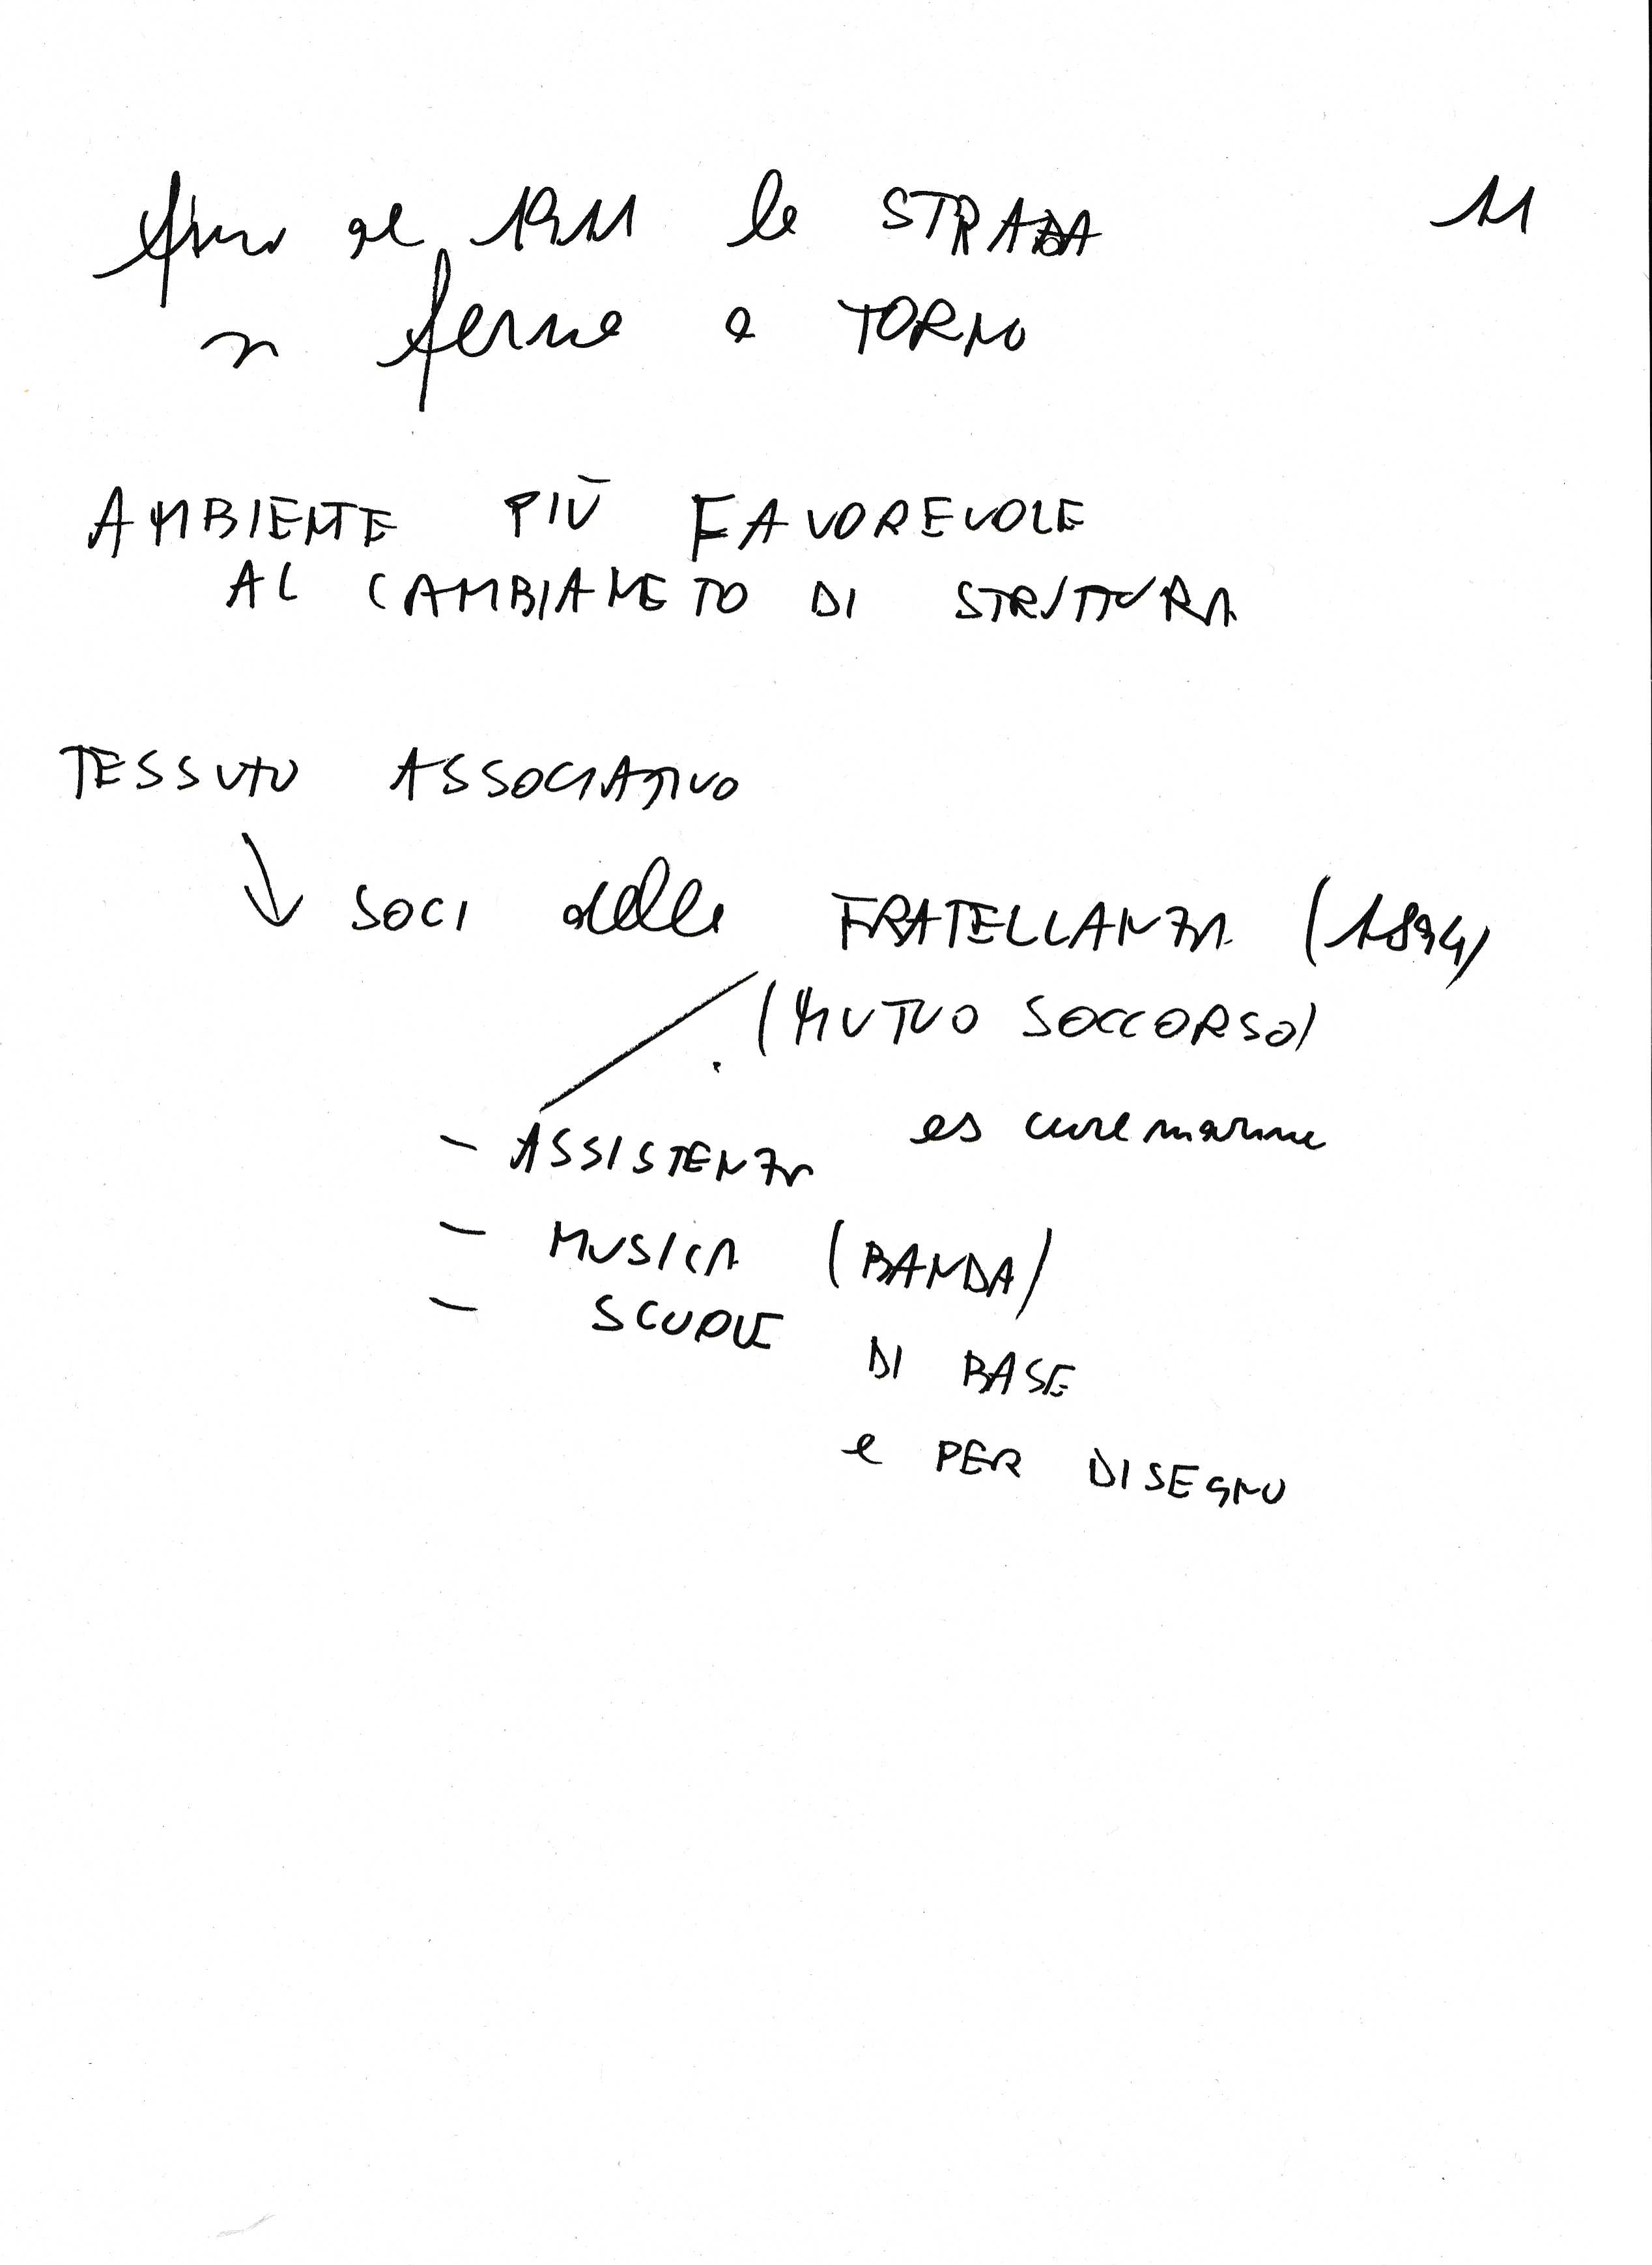 fino al 1911 la STRADA 11
si ferma a TORNO
AMBIENTE PIÙ FAVOREVOLE
AL CAMBIAMETO DI STRUTTURA
TESSUTO ASSOCIATIVO
↓ SOCI della FRATELLANZA
(MUTUO SOCCORSO)
es cure marine
- ASSISTENZA
- MUSICA (BANDA)
- SCUOLE
DI BASE
e PER DISEGNO